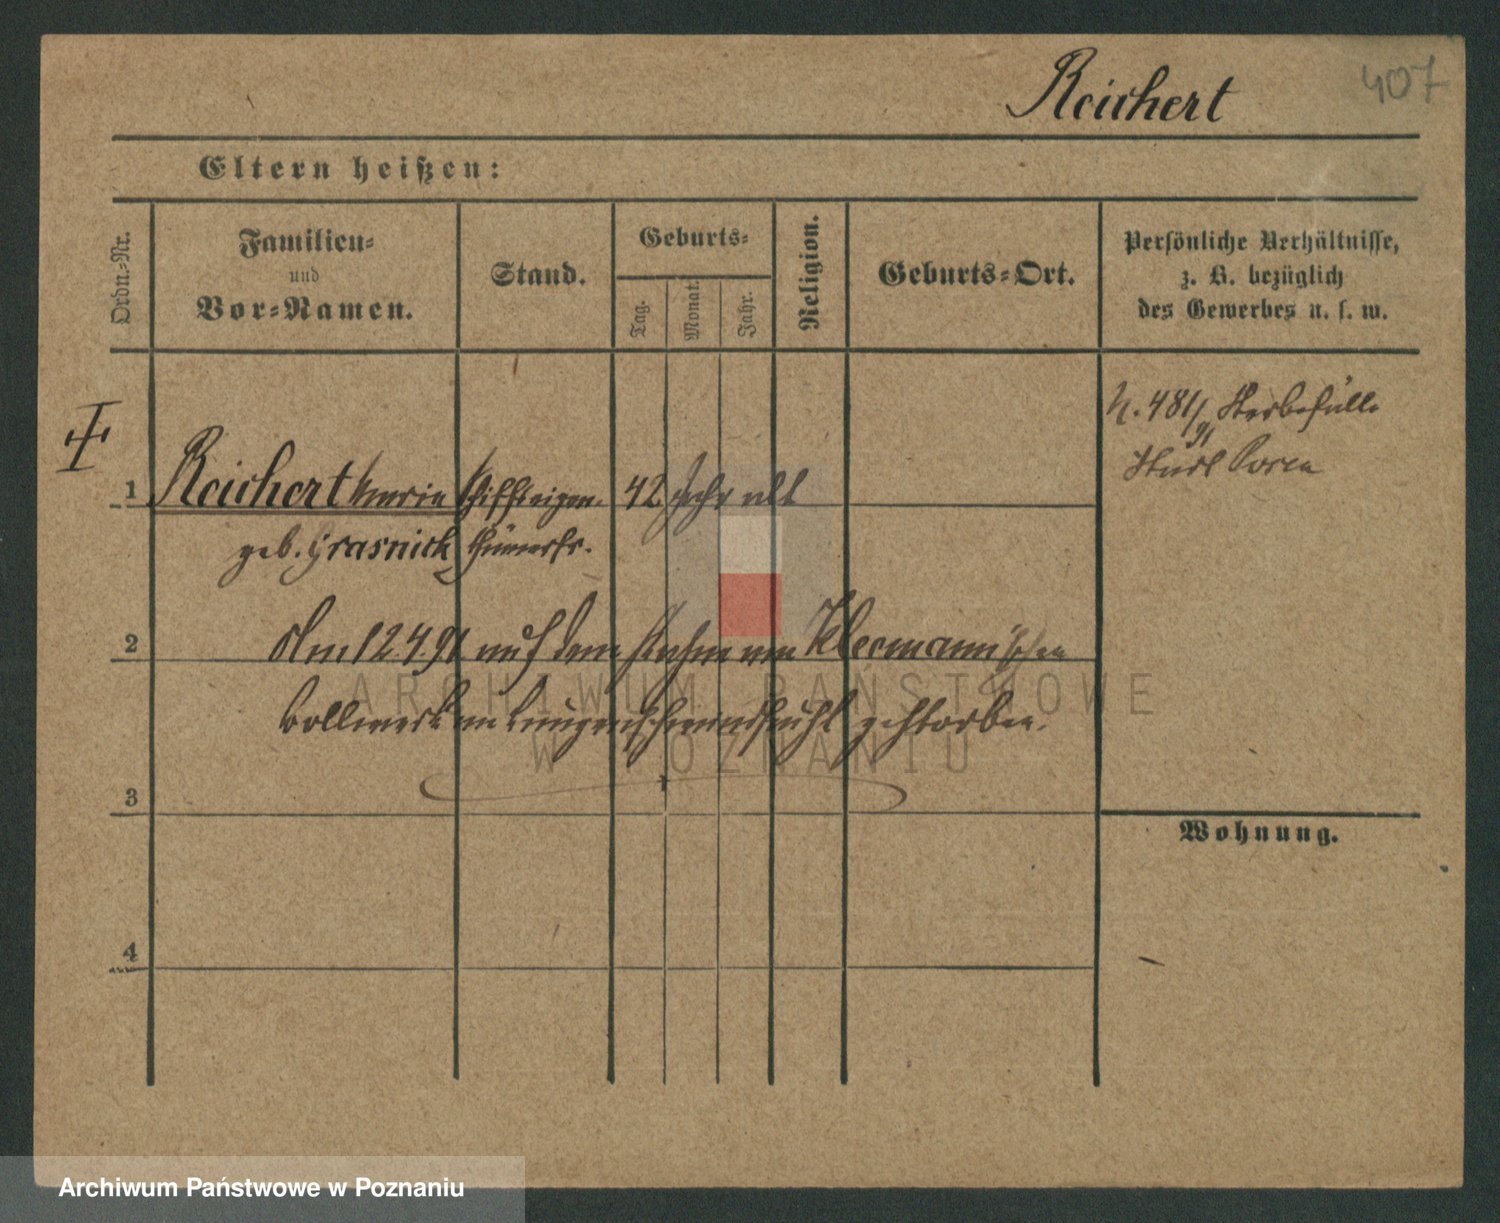 Reichert
407
Eltern heißen:
Ordn.-Nr.
Familien-
und
Vor-Namen.
Stand.
Geburts-
Tag.
Monat.
Jahr.
Religion.
Geburts-Ort.
Persönliche Verhältnisse,
z. B. bezüglich
des Gewerbes u. s. w.
N. 481/91 Sterbefälle
Stadt Posen
1 Reichert Maria Schiffseigen- 42 Jahr alt
geb. Grasnick thümerfr.
2 Am 12.4.91 auf dem Kahne am Kleemann'schen
Bollwerk an Lungenschwindsucht gestorben.
3
Wohnung.
4
ARCHIWUM PAŃSTWOWE
W POZNANIU
Archiwum Państwowe w Poznaniu